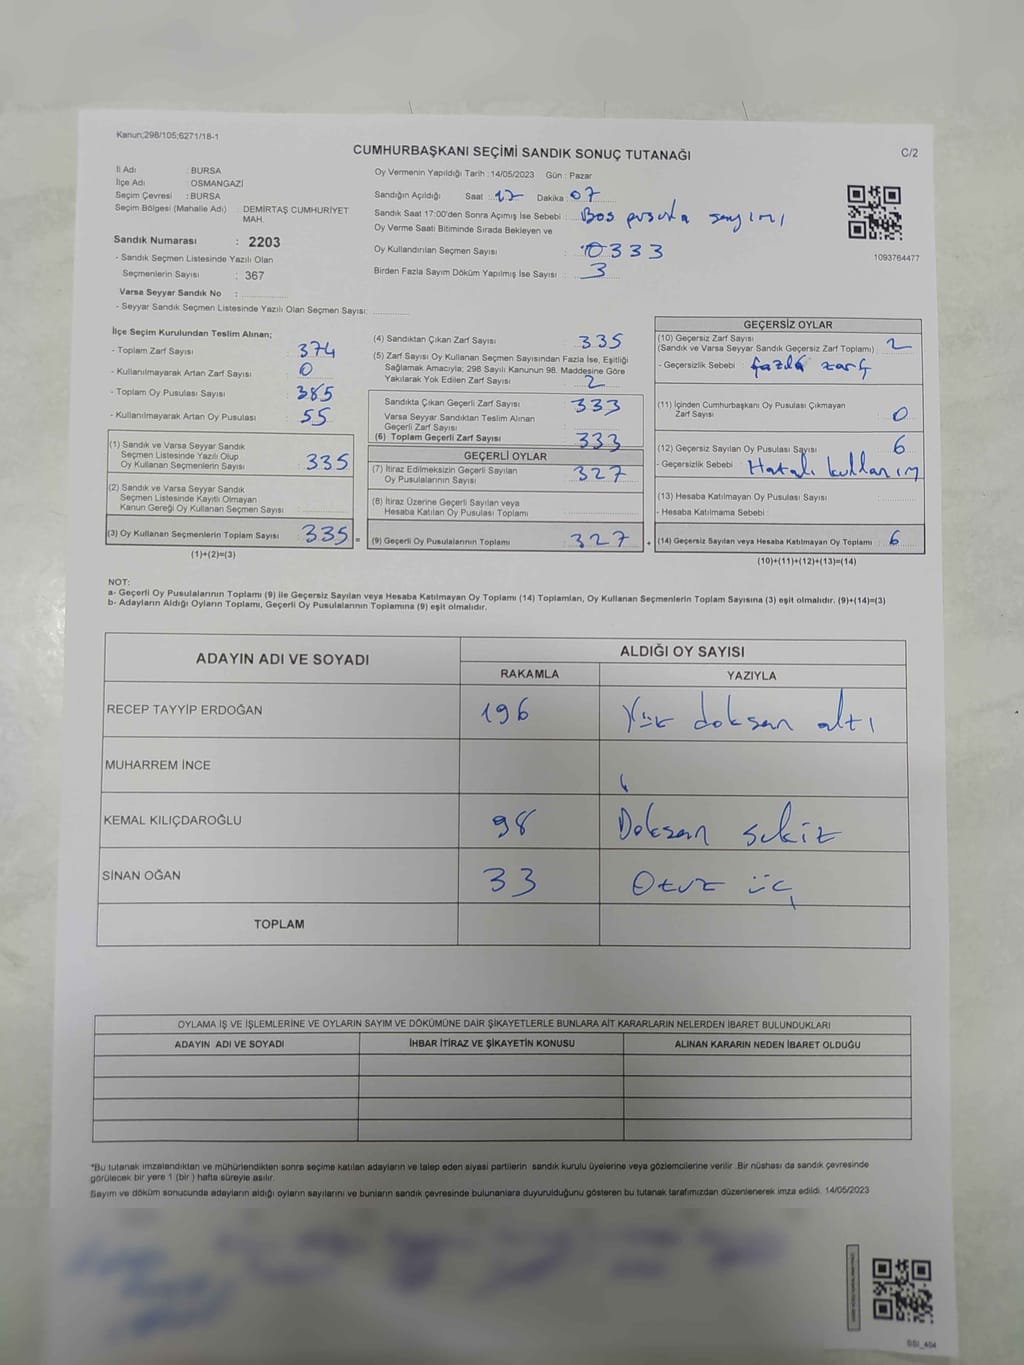 Kanun;298/105;6271/18-1
CUMHURBAŞKANI SEÇİMİ SANDIK SONUÇ TUTANAĞI
C/2
İl Adı : BURSA
İlçe Adı : OSMANGAZİ
Seçim Çevresi : BURSA
Seçim Bölgesi (Mahalle Adı) : DEMİRTAŞ CUMHURİYET
MAH.
Sandık Numarası : 2203
- Sandık Seçmen Listesinde Yazılı Olan
Seçmenlerin Sayısı : 367
Varsa Seyyar Sandık No :
- Seyyar Sandık Seçmen Listesinde Yazılı Olan Seçmen Sayısı:
Oy Vermenin Yapıldığı Tarih : 14/05/2023 Gün : Pazar
Sandığın Açıldığı Saat : 17 Dakika : 07
Sandık Saat 17:00'den Sonra Açımış İse Sebebi : Bos pusula sayımı
Oy Verme Saati Bitiminde Sırada Bekleyen ve
Oy Kullandırılan Seçmen Sayısı : 0333
Birden Fazla Sayım Döküm Yapılmış İse Sayısı : 3
1093764477
İlçe Seçim Kurulundan Teslim Alınan;
- Toplam Zarf Sayısı : 374
- Kullanılmayarak Artan Zarf Sayısı : 0
- Toplam Oy Pusulası Sayısı : 385
- Kullanılmayarak Artan Oy Pusulası : 55
(1) Sandık ve Varsa Seyyar Sandık
Seçmen Listesinde Yazılı Olup
Oy Kullanan Seçmenlerin Sayısı : 335
(2) Sandık ve Varsa Seyyar Sandık
Seçmen Listesinde Kayıtlı Olmayan
Kanun Gereği Oy Kullanan Seçmen Sayısı :
(3) Oy Kullanan Seçmenlerin Toplam Sayısı : 335 =
(1)+(2)=(3)
(4) Sandıktan Çıkan Zarf Sayısı : 335
(5) Zarf Sayısı Oy Kullanan Seçmen Sayısından Fazla İse, Eşitliği
Sağlamak Amacıyla; 298 Sayılı Kanunun 98. Maddesine Göre
Yakılarak Yok Edilen Zarf Sayısı : 2
Sandıkta Çıkan Geçerli Zarf Sayısı : 333
Varsa Seyyar Sandıktan Teslim Alınan
Geçerli Zarf Sayısı :
(6) Toplam Geçerli Zarf Sayısı : 333
GEÇERLİ OYLAR
(7) İtiraz Edilmeksizin Geçerli Sayılan
Oy Pusulalarının Sayısı : 327
(8) İtiraz Üzerine Geçerli Sayılan veya
Hesaba Katılan Oy Pusulası Toplamı :
(9) Geçerli Oy Pusulalarının Toplamı : 327 +
GEÇERSİZ OYLAR
(10) Geçersiz Zarf Sayısı
(Sandık ve Varsa Seyyar Sandık Geçersiz Zarf Toplamı) : 2
- Geçersizlik Sebebi : fazla zarf
(11) İçinden Cumhurbaşkanı Oy Pusulası Çıkmayan
Zarf Sayısı : 0
(12) Geçersiz Sayılan Oy Pusulası Sayısı : 6
- Geçersizlik Sebebi : Hatalı kullanım
(13) Hesaba Katılmayan Oy Pusulası Sayısı :
- Hesaba Katılmama Sebebi :
(14) Geçersiz Sayılan veya Hesaba Katılmayan Oy Toplamı : 6
(10)+(11)+(12)+(13)=(14)
NOT:
a- Geçerli Oy Pusulalarının Toplamı (9) ile Geçersiz Sayılan veya Hesaba Katılmayan Oy Toplamı (14) Toplamları, Oy Kullanan Seçmenlerin Toplam Sayısına (3) eşit olmalıdır. (9)+(14)=(3)
b- Adayların Aldığı Oyların Toplamı, Geçerli Oy Pusulalarının Toplamına (9) eşit olmalıdır.
ADAYIN ADI VE SOYADI
ALDIĞI OY SAYISI
RAKAMLA YAZIYLA
RECEP TAYYİP ERDOĞAN 196 Yüz doksan altı
MUHARREM İNCE
KEMAL KILIÇDAROĞLU 98 Doksan sekiz
SİNAN OĞAN 33 Otuz üç
TOPLAM
OYLAMA İŞ VE İŞLEMLERİNE VE OYLARIN SAYIM VE DÖKÜMÜNE DAİR ŞİKAYETLERLE BUNLARA AİT KARARLARIN NELERDEN İBARET BULUNDUKLARI
ADAYIN ADI VE SOYADI İHBAR İTİRAZ VE ŞİKAYETİN KONUSU ALINAN KARARIN NEDEN İBARET OLDUĞU
*Bu tutanak imzalandıktan ve mühürlendikten sonra seçime katılan adayların ve talep eden siyasi partilerin sandık kurulu üyelerine veya gözlemcilerine verilir. Bir nüshası da sandık çevresinde
görülecek bir yere 1 (bir) hafta süreyle asılır.
Sayım ve döküm sonucunda adayların aldığı oyların sayılarını ve bunların sandık çevresinde bulunanlara duyurulduğunu gösteren bu tutanak tarafımızdan düzenlenerek imza edildi. 14/05/2023